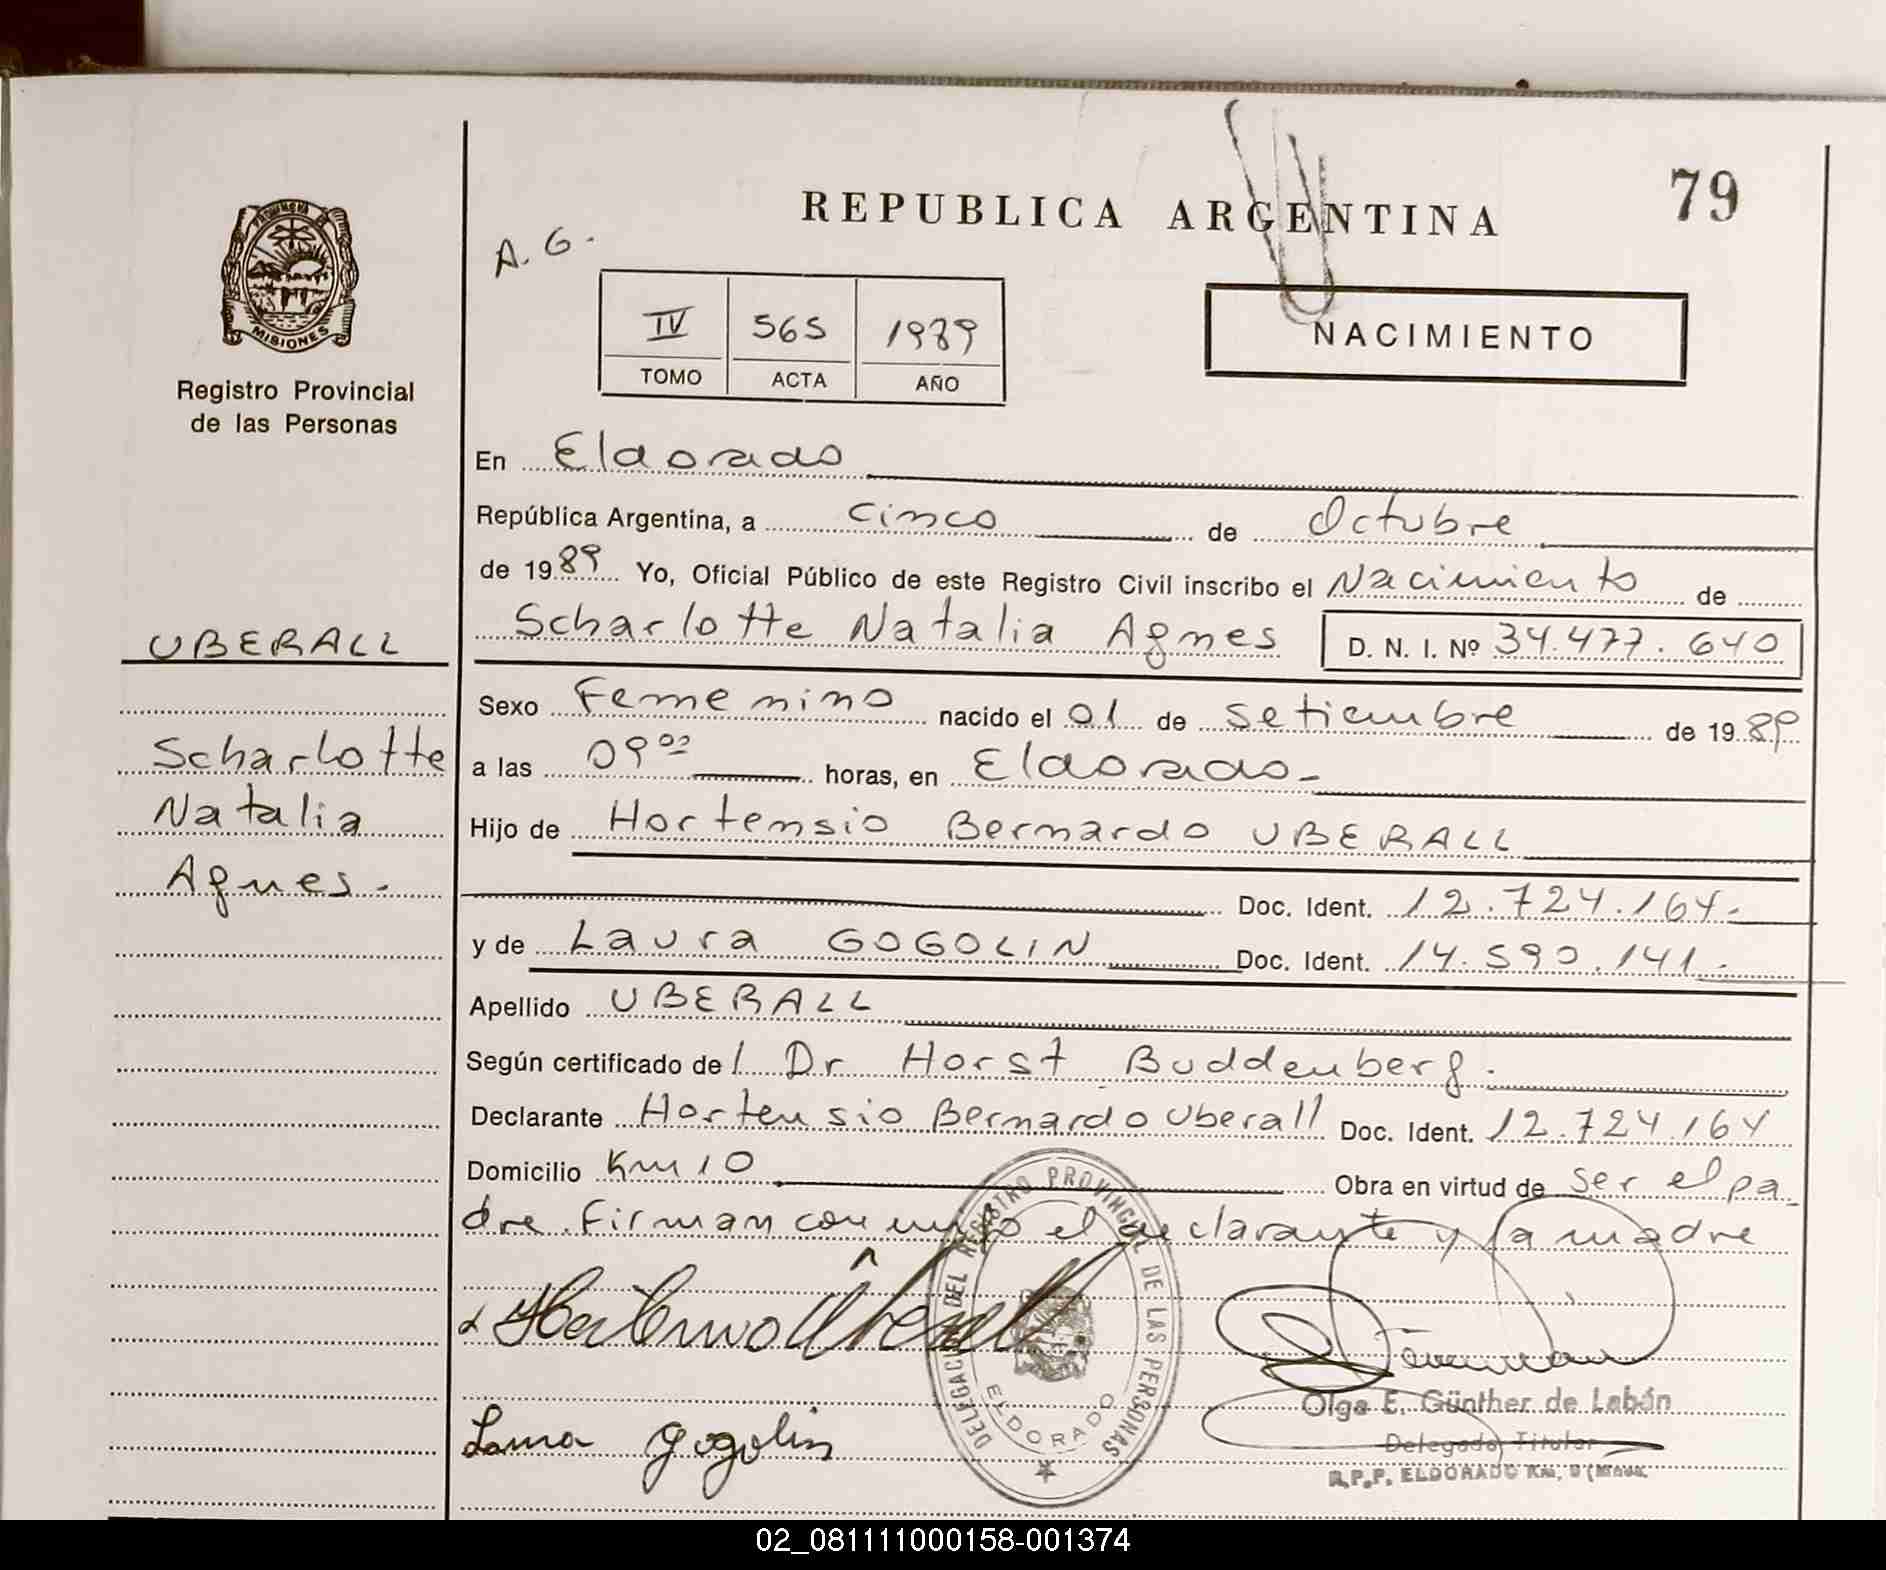 79
REPUBLICA ARGENTINA
A. G.
PROVINCIA DE
MISIONES
Registro Provincial
de las Personas
IV 565 1989
TOMO ACTA AÑO
NACIMIENTO
En Eldorado
República Argentina, a cinco de Octubre
de 1989 Yo, Oficial Público de este Registro Civil inscribo el Nacimiento de
Scharlotte Natalia Agnes D. N. I. Nº 34.477.640
UBERALL
Scharlotte
Natalia
Agnes.
Sexo Femenino nacido el 01 de setiembre de 1989
a las 09 00 horas, en Eldorado
Hijo de Hortensio Bernardo UBERALL
Doc. Ident. 12.724.164.
y de Laura GOGOLIN Doc. Ident. 14.590.141.
Apellido UBERALL
Según certificado de l Dr Horst Buddenberg.
Declarante Hortensio Bernardo Uberall Doc. Ident. 12.724.164
Domicilio Km 10 Obra en virtud de ser el pa
dre. Firman conmigo el declarante y la madre
DELEGACION DEL REGISTRO PROVINCIAL DE LAS PERSONAS
ELDORADO
Laura Gogolin
Olga E. Günther de Labán
Delegado Titular
R.P.P. ELDORADO Km. 9
02_081111000158-001374